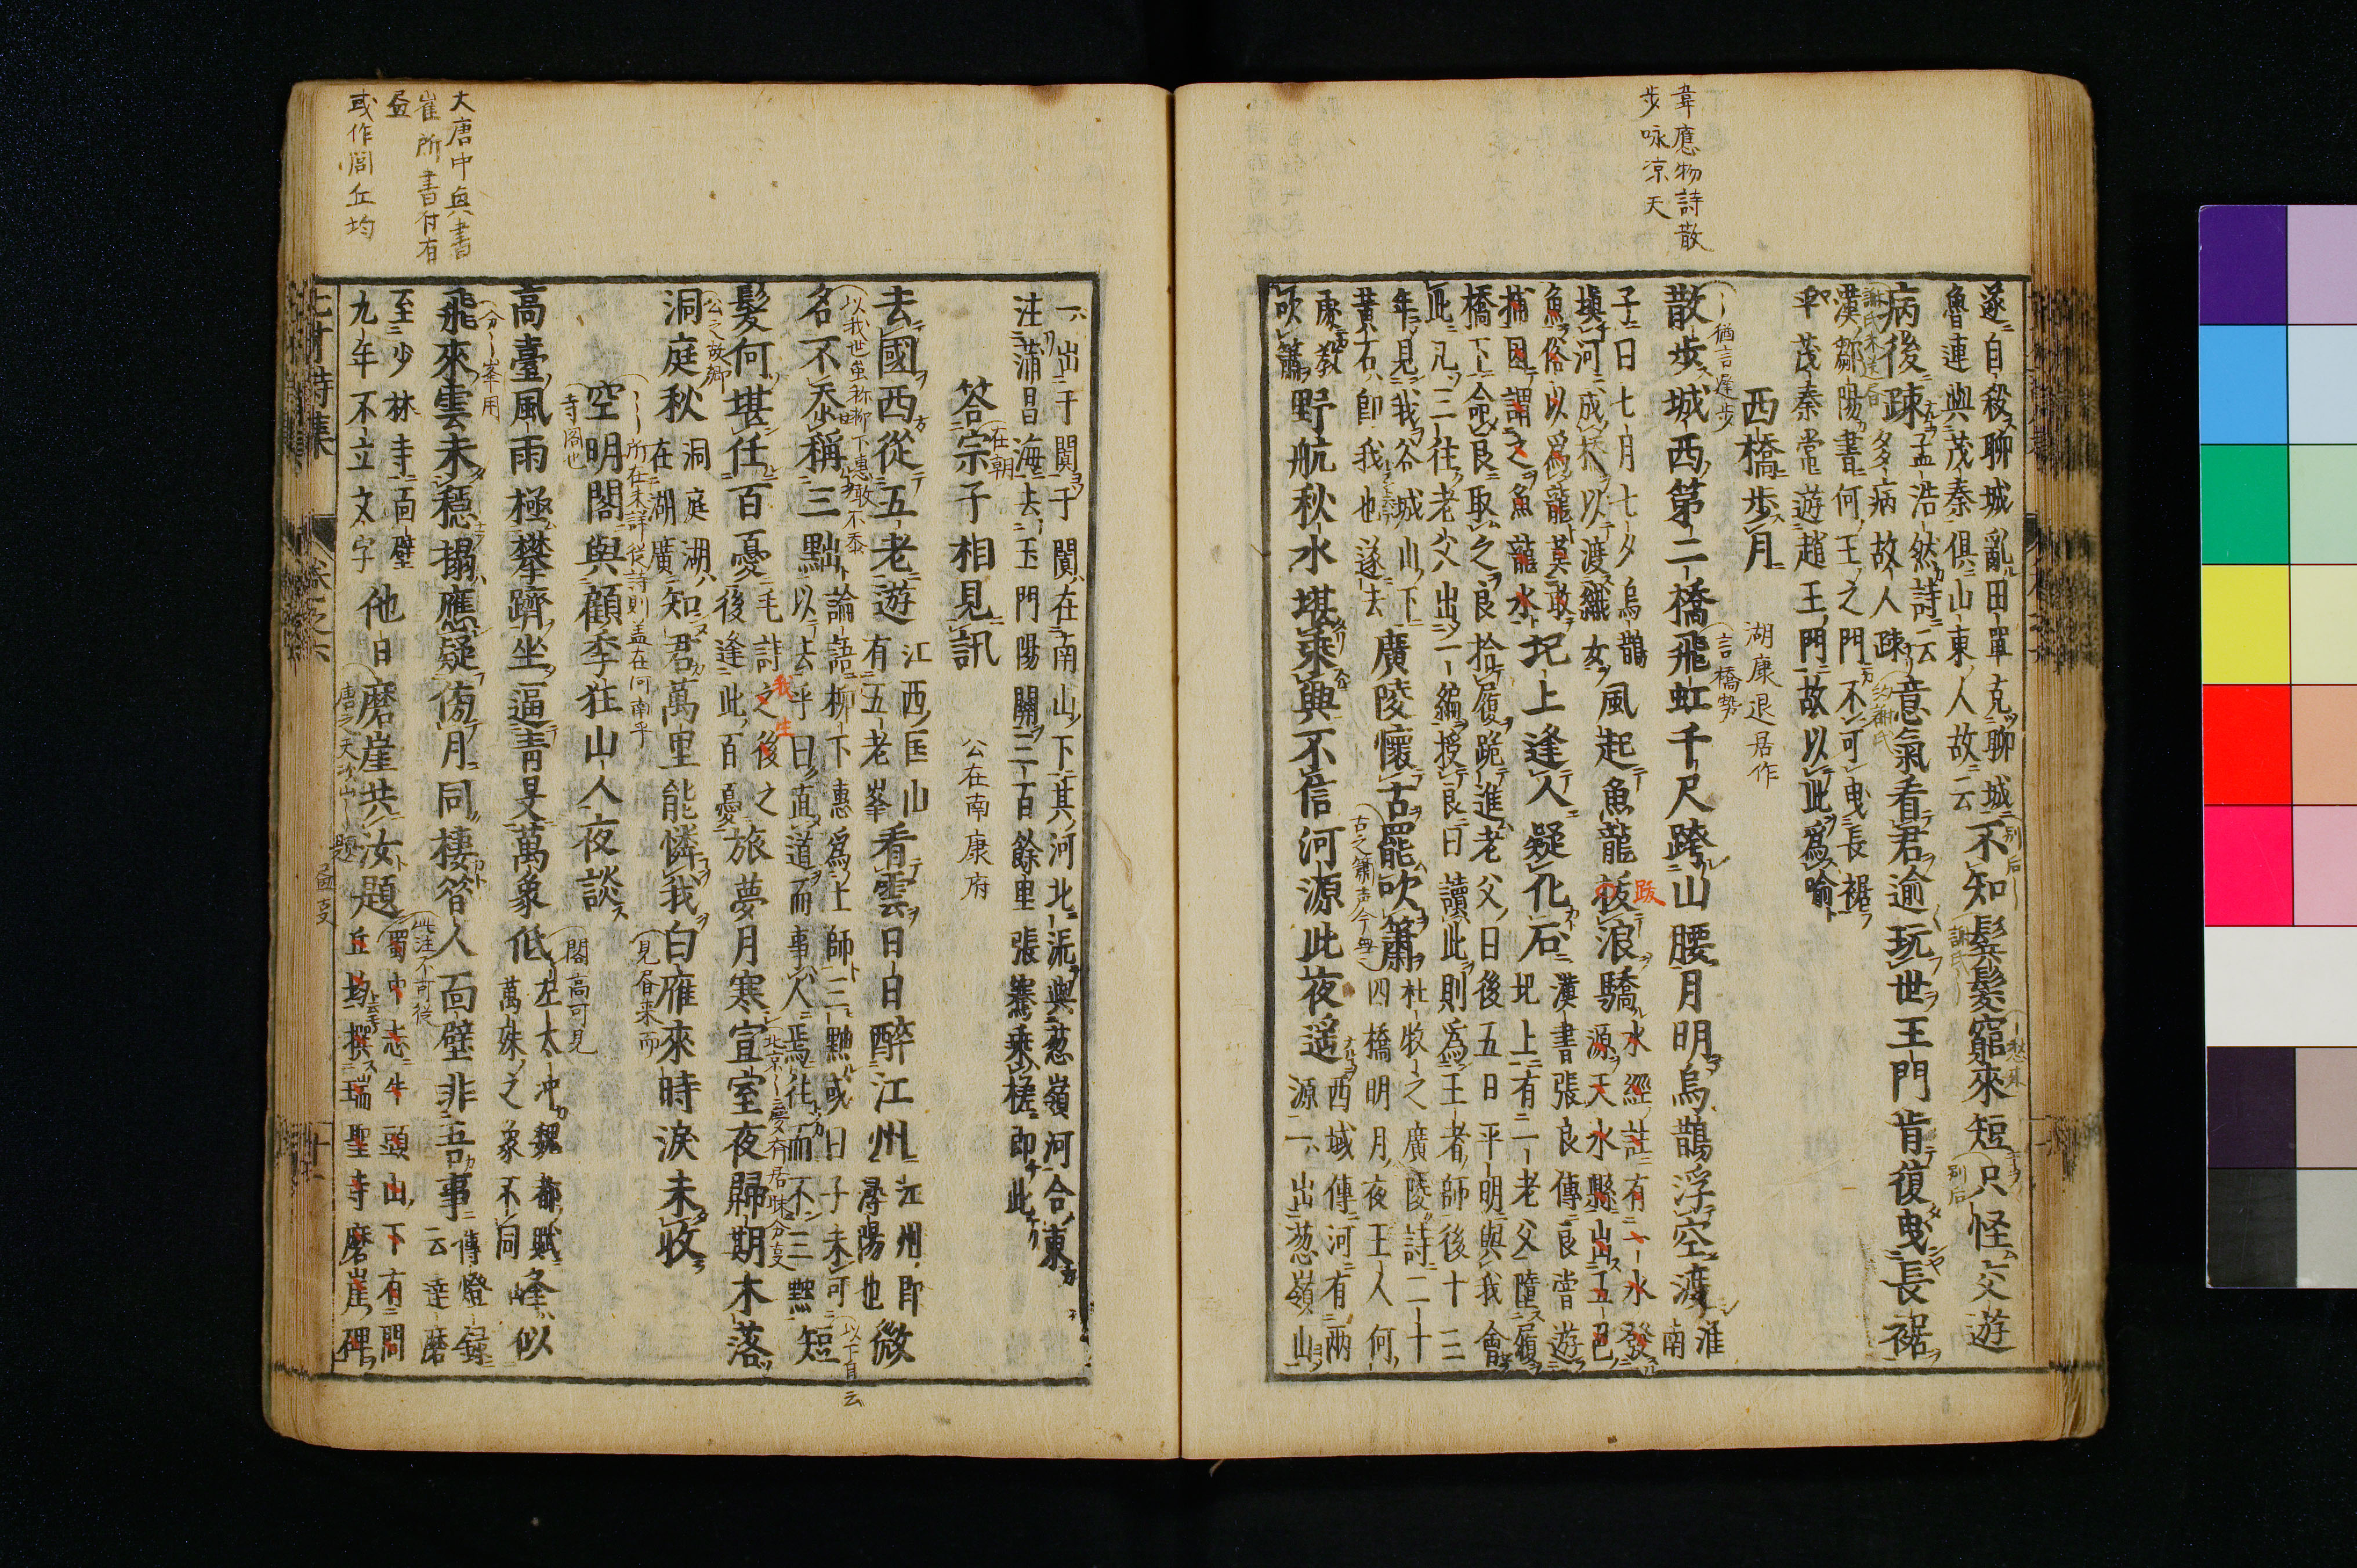 韋應物詩散
步咏凉天
遂自殺聊城亂田單克聊城
魯連與茂秦俱山東人故云
不知鬂髮窮來短只怪交遊
病後踈
孟浩然詩云
多病故人踈
意氣看君逾玩世王門肯復曳長裾
漢鄒陽書何王之門不可曳長裾
乎茂秦常遊趙王門故以此爲喻
西橋步月
湖康退居作
猶言遅步
散歩城西第二橋飛虹千尺跨山腰月明烏鵲浮空渡
言橋勢
淮南
子曰七月七夕烏鵲
塡河成橋以渡織女
風起魚龍䟦浪驕
跋
水經註有一水發
源天水縣山五色
魚俗以爲龍莫敢
捕因謂之魚龍水
圯上逢人疑化石
漢書張良傳良嘗遊
圯上有一老父墮履
橋下命良取之良拾履跪進老父曰後五日平明與我會
此凡三往老父出一編授良曰讀此則爲王者師後十三
年見我谷城山下
黃石即我也遂去
廣陵懷古罷吹簫
古之簫声今無
杜牧之廣陵詩二十
四橋明月夜王人何
處教
吹簫
野航秋水堪乘興不信河源此夜遥
西域傳河有兩
源一出葱嶺山
一出于闐于闐在南山下其河北流與葱嶺河合東
注蒲昌海去玉門陽關三百餘里張騫乘槎即此
答宗子相見訊
在朝
公在南康府
去國西從五老遊
江西匡山
有五老峯
看雲日日醉江州
江州即
潯陽也
微
名不忝稱三黜
論語柳下惠爲士師三黜或曰子未可
以去乎曰直道而事人焉往而不三黜
以下自云
短
髮何堪任百憂
毛詩之後之
後逢此百憂
我生
旅夢月寒宣室夜歸期木落
公之故郷
洞庭秋
洞庭湖
在湖廣
知君萬里能憐我白雁來時淚未收
空明閣與顧季狂山人夜談
寺閣也
所在未詳從詩則盖在河南乎
閣高可見
高臺風雨極攀躋坐逼靑旻萬象低
左太冲魏都賦
萬殊之象不同
峰似
飛來雲未穩榻應疑傍月同棲昔人面壁非吾事
傳燈録
云達磨
此注不可從
至少林寺面壁
九年不立文字
他日磨崖共汝題
蜀中志牛頭山下有閭
丘均撰瑞聖寺磨崖碑
大唐中興書
崔所書付有
或作閭丘均
七才詩集
卷之六